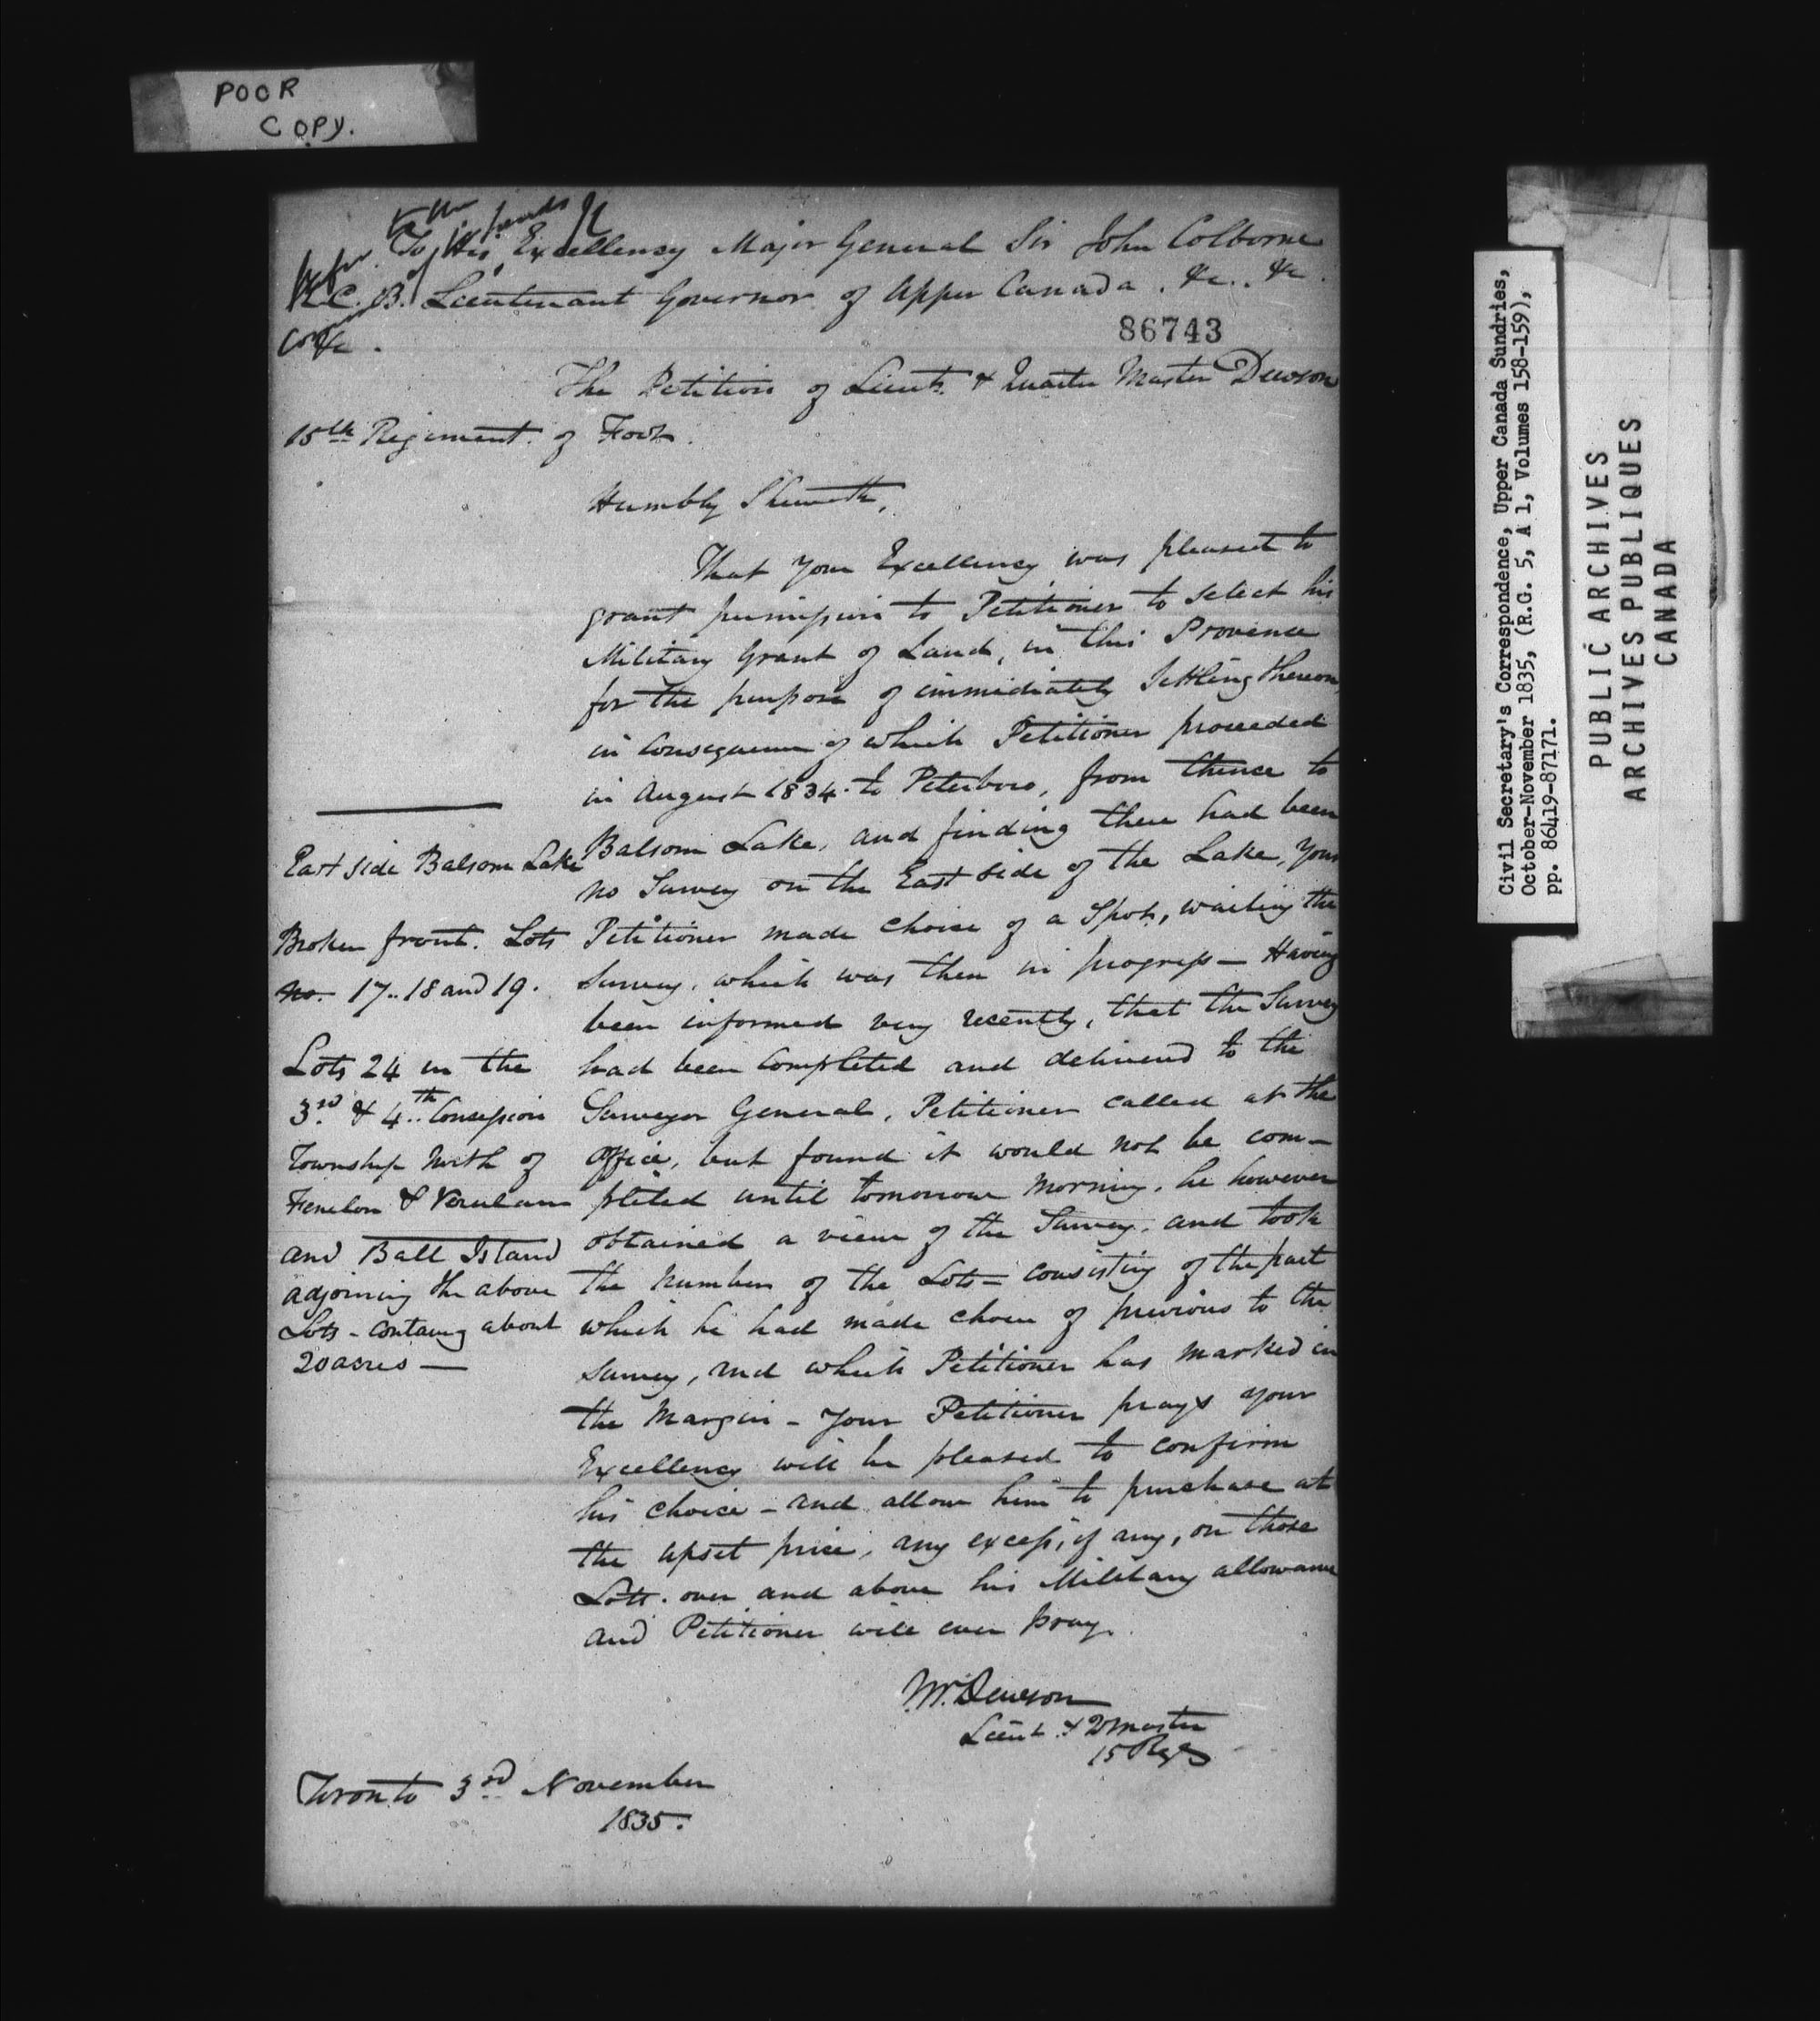 POOR
COPY.
To His Excellency Major General Sir John Colborne
K.C.B. Lieutenant Governor of Upper Canada . &c.. &c.
&c.
86743
The Petition of Lieut. & Quarter Master Dewson
15th Regiment of Foot.
Humbly Sheweth,
That your Excellency was pleased to
grant permission to Petitioner to select his
Military Grant of Land, in this Provence
for the purpose of immediately Settling thereon,
in Consequence of which Petitioner proceeded
in August 1834. to Peterboro, from thence to
Balsom Lake, and finding there had been
no Survey on the East side of the Lake, Your
Petitioner made choise of a Spot, waiting the
Survey, which was then in progress — Having
been informed very recently, that the Survey
had been Completed and delivered to the
Surveyor General, Petitioner called at the
Office, but found it would not be com-
pleted until tomorrow Morning, he however
obtained a view of the Survey, and took
the Numbers of the Lots = consisting of the part
which he had made choice of previous to the
Survey, and which Petitioner has marked in
the Margin - Your Petitioner prays your
Excellency will be pleased to confirm
his choice - and allow him to purchase at
the upset price, any excess, if any, on those
Lots. over and above his Military allowance
and Petitioner will ever pray.
East side Balsom Lake
Broken front. Lots
No. 17.. 18 and 19.
Lots 24 in the
3rd & 4th Concession
Township North of
Fenelon & Verulam
and Ball Island
adjoining the above
Lots - containg about
20 acres —
W. Dewson
Lieut & Qr Master
15 Regt
Toronto 3rd November
1835.
Civil Secretary's Correspondence, Upper Canada Sundries,
October-November 1835, (R.G. 5, A 1, Volumes 158-159),
pp. 86419-87171.
PUBLIC ARCHIVES
ARCHIVES PUBLIQUES
CANADA